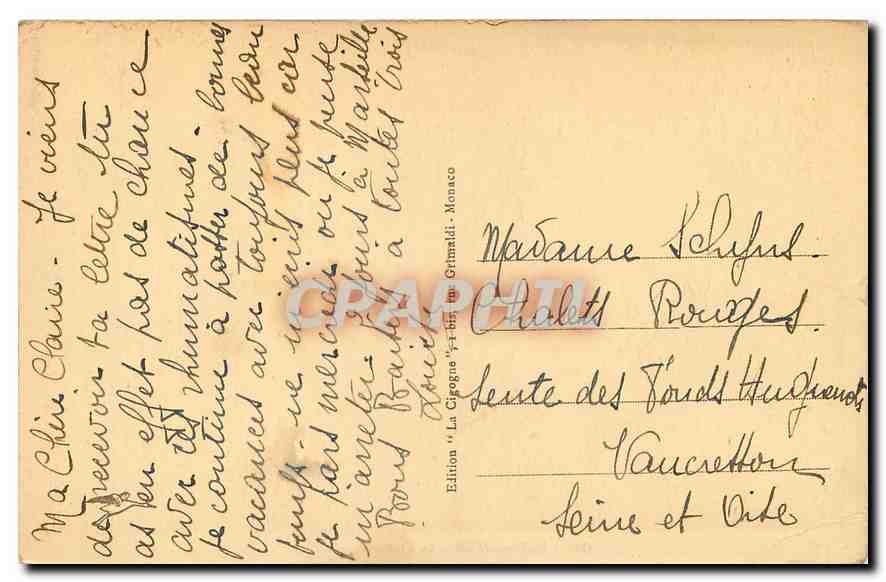 Ma Chère Claire - Je viens
de recevoir ta lettre tu
as en effet pas de chance
avec tes rhumatismes -
je continue à passer de bonnes
vacances avec toujours beau
temps - ne viens plus car
je pars mercredi ou je pense
m'arrêter jours à Marseille
Bons Baisers à toutes trois
Louis
Edition " La Cigogne ", 1 bis, rue Grimaldi - Monaco
CPAPHIL
Madame
Chalets Rouges.
Sente des Fonds Huguenots
Vaucresson
Seine et Oise